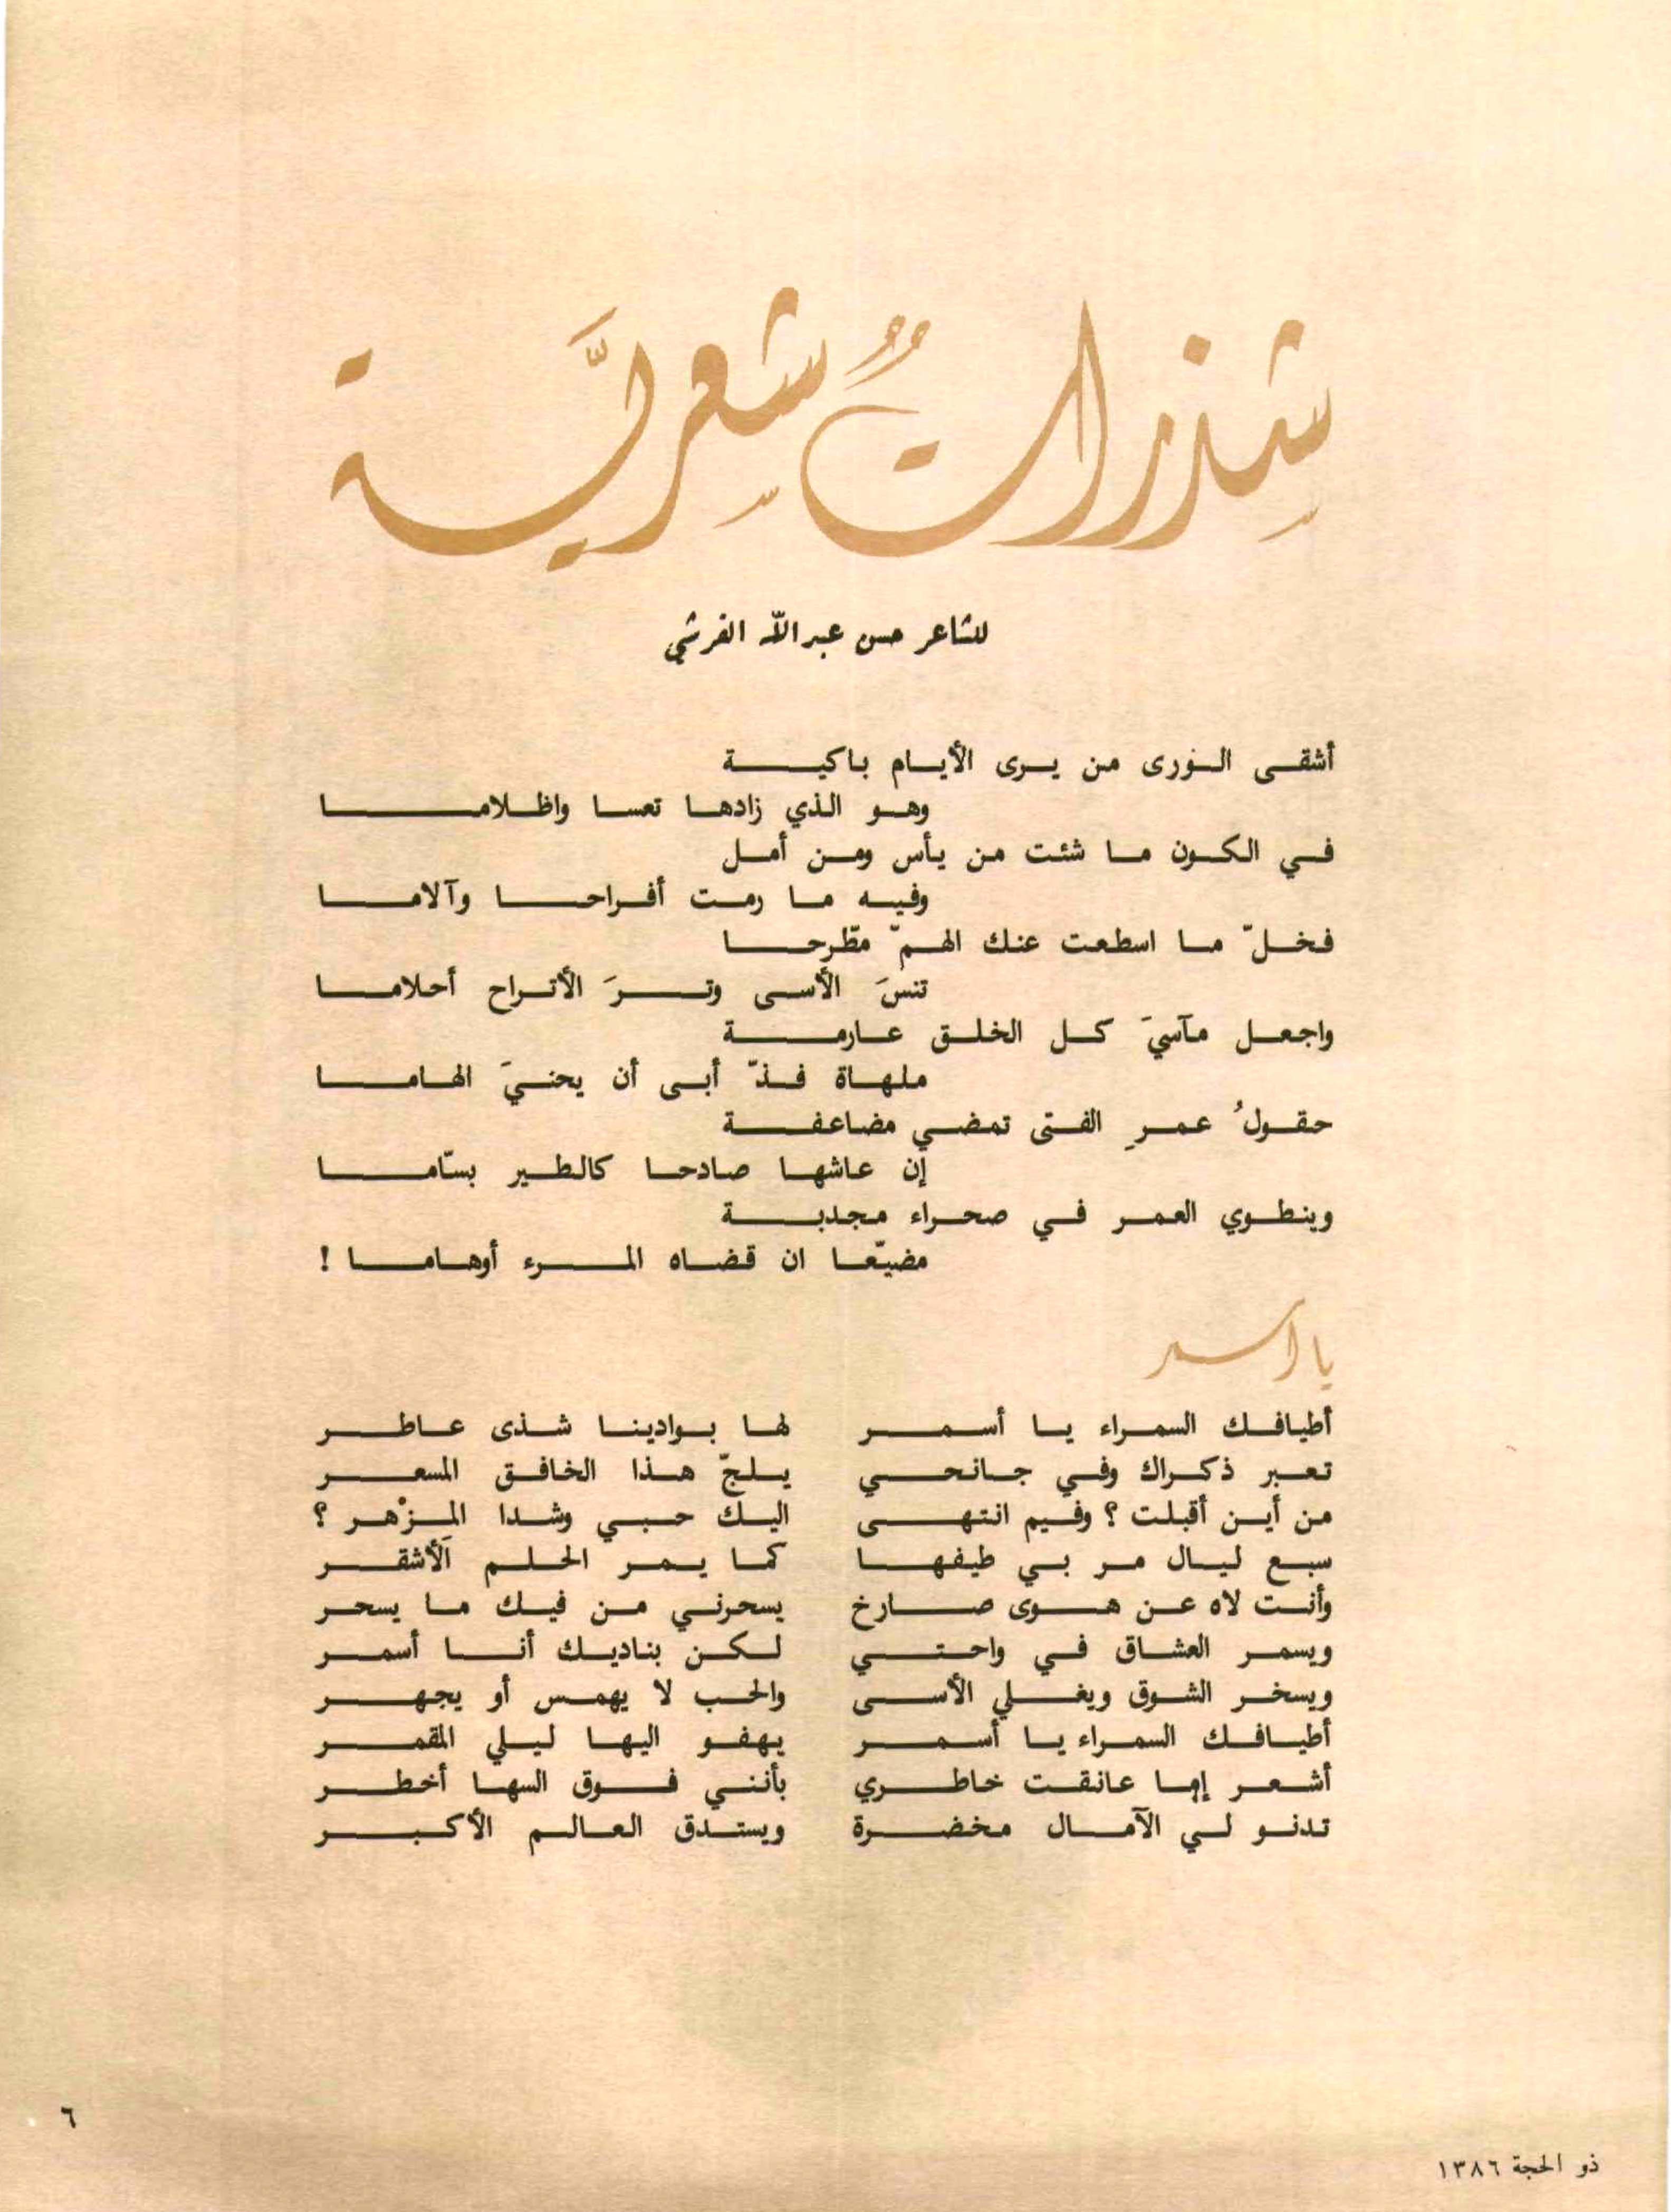 شذراتٌ شعريَّة
للشاعر حسن عبدالله القرشي
أشقى الورى من يرى الأيام باكية
وهو الذي زادها تعسا واظلاما
في الكون ما شئت من يأس ومن أمل
وفيه ما رمت أفراحا وآلاما
فخلّ ما اسطعت عنك الهمّ مطّرحا
تنسَ الأسى وترَ الأتراح أحلاما
واجعل مآسيَ كل الخلق عارمة
ملهاة فذّ أبى أن يحنيَ الهاما
حقولُ عمرِ الفتى تمضي مضاعفة
إن عاشها صادحا كالطير بسّاما
وينطوي العمر في صحراء مجدبة
مضيّعا ان قضاه المرء أوهاما !
يا أسمر
أطيافك السمراء يا أسمر لها بوادينا شذى عاطر
تعبر ذكراك وفي جانحي يلجّ هذا الخافق المسعر
من أين أقبلت ؟ وفيم انتهى اليك حبي وشدا المزْهر ؟
سبع ليال مر بي طيفها كما يمر الحلم الأشقر
وأنت لاه عن هوى صارخ يسحرني من فيك ما يسحر
ويسمر العشاق في واحتي لكن بناديك أنا أسمر
ويسخر الشوق ويغلي الأسى والحب لا يهمس أو يجهر
أطيافك السمراء يا أسمر يهفو اليها ليلي المقمر
أشعر إما عانقت خاطري بأنني فوق السها أخطر
تدنو لي الآمال مخضرة ويستدق العالم الأكبر
٦
ذو الحجة ١٣٨٦